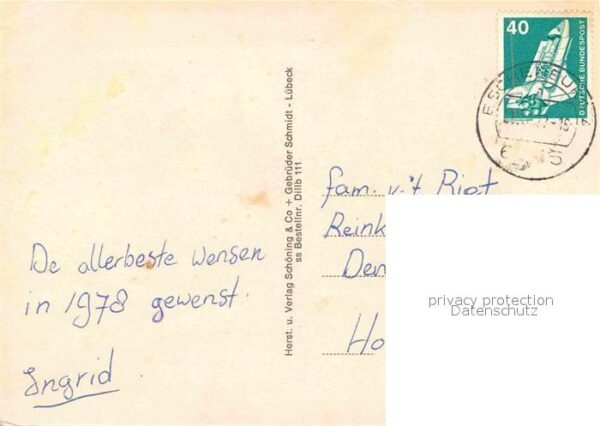 40
DEUTSCHE BUNDESPOST
De allerbeste wensen
in 1978 gewenst.
Ingrid
Herst. u. Verlag Schöning & Co + Gebrüder Schmidt - Lübeck
ss Bestellnr. Dillb 111
fam. v.'t Riet
Reink
Den
Ho
privacy protection
Datenschutz